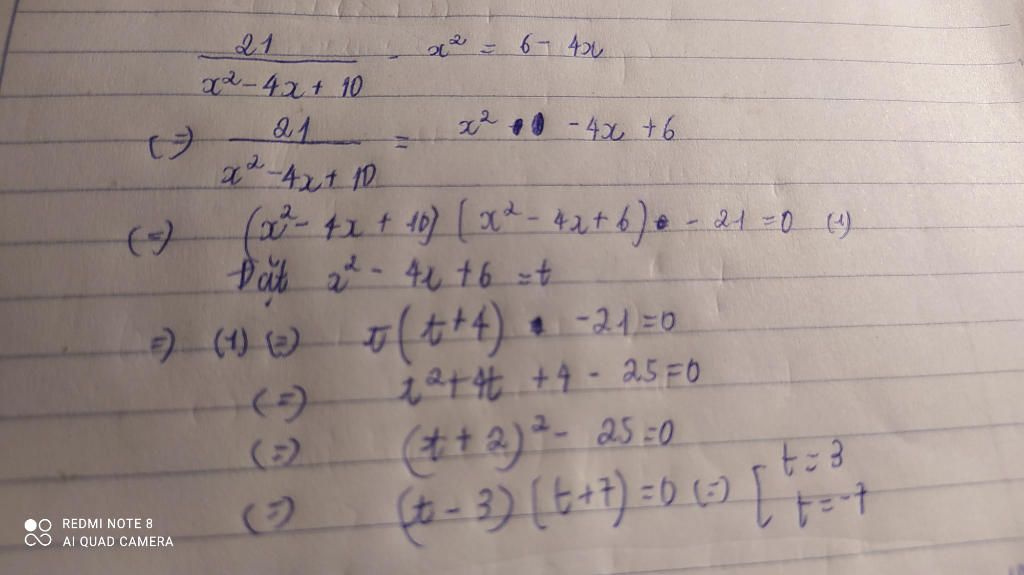 21/(x² - 4x + 10) - x² = 6 - 4x
(=) 21/(x² - 4x + 10) = x² - 4x + 6
(=) (x² - 4x + 10) (x² - 4x + 6) - 21 = 0 (1)
Đặt x² - 4x + 6 = t
=) (1) (=) t(t+4) - 21 = 0
(=) t² + 4t + 4 - 25 = 0
(=) (t + 2)² - 25 = 0
(=) (t - 3) (t + 7) = 0 (=) [ t = 3
t = -7
REDMI NOTE 8
AI QUAD CAMERA